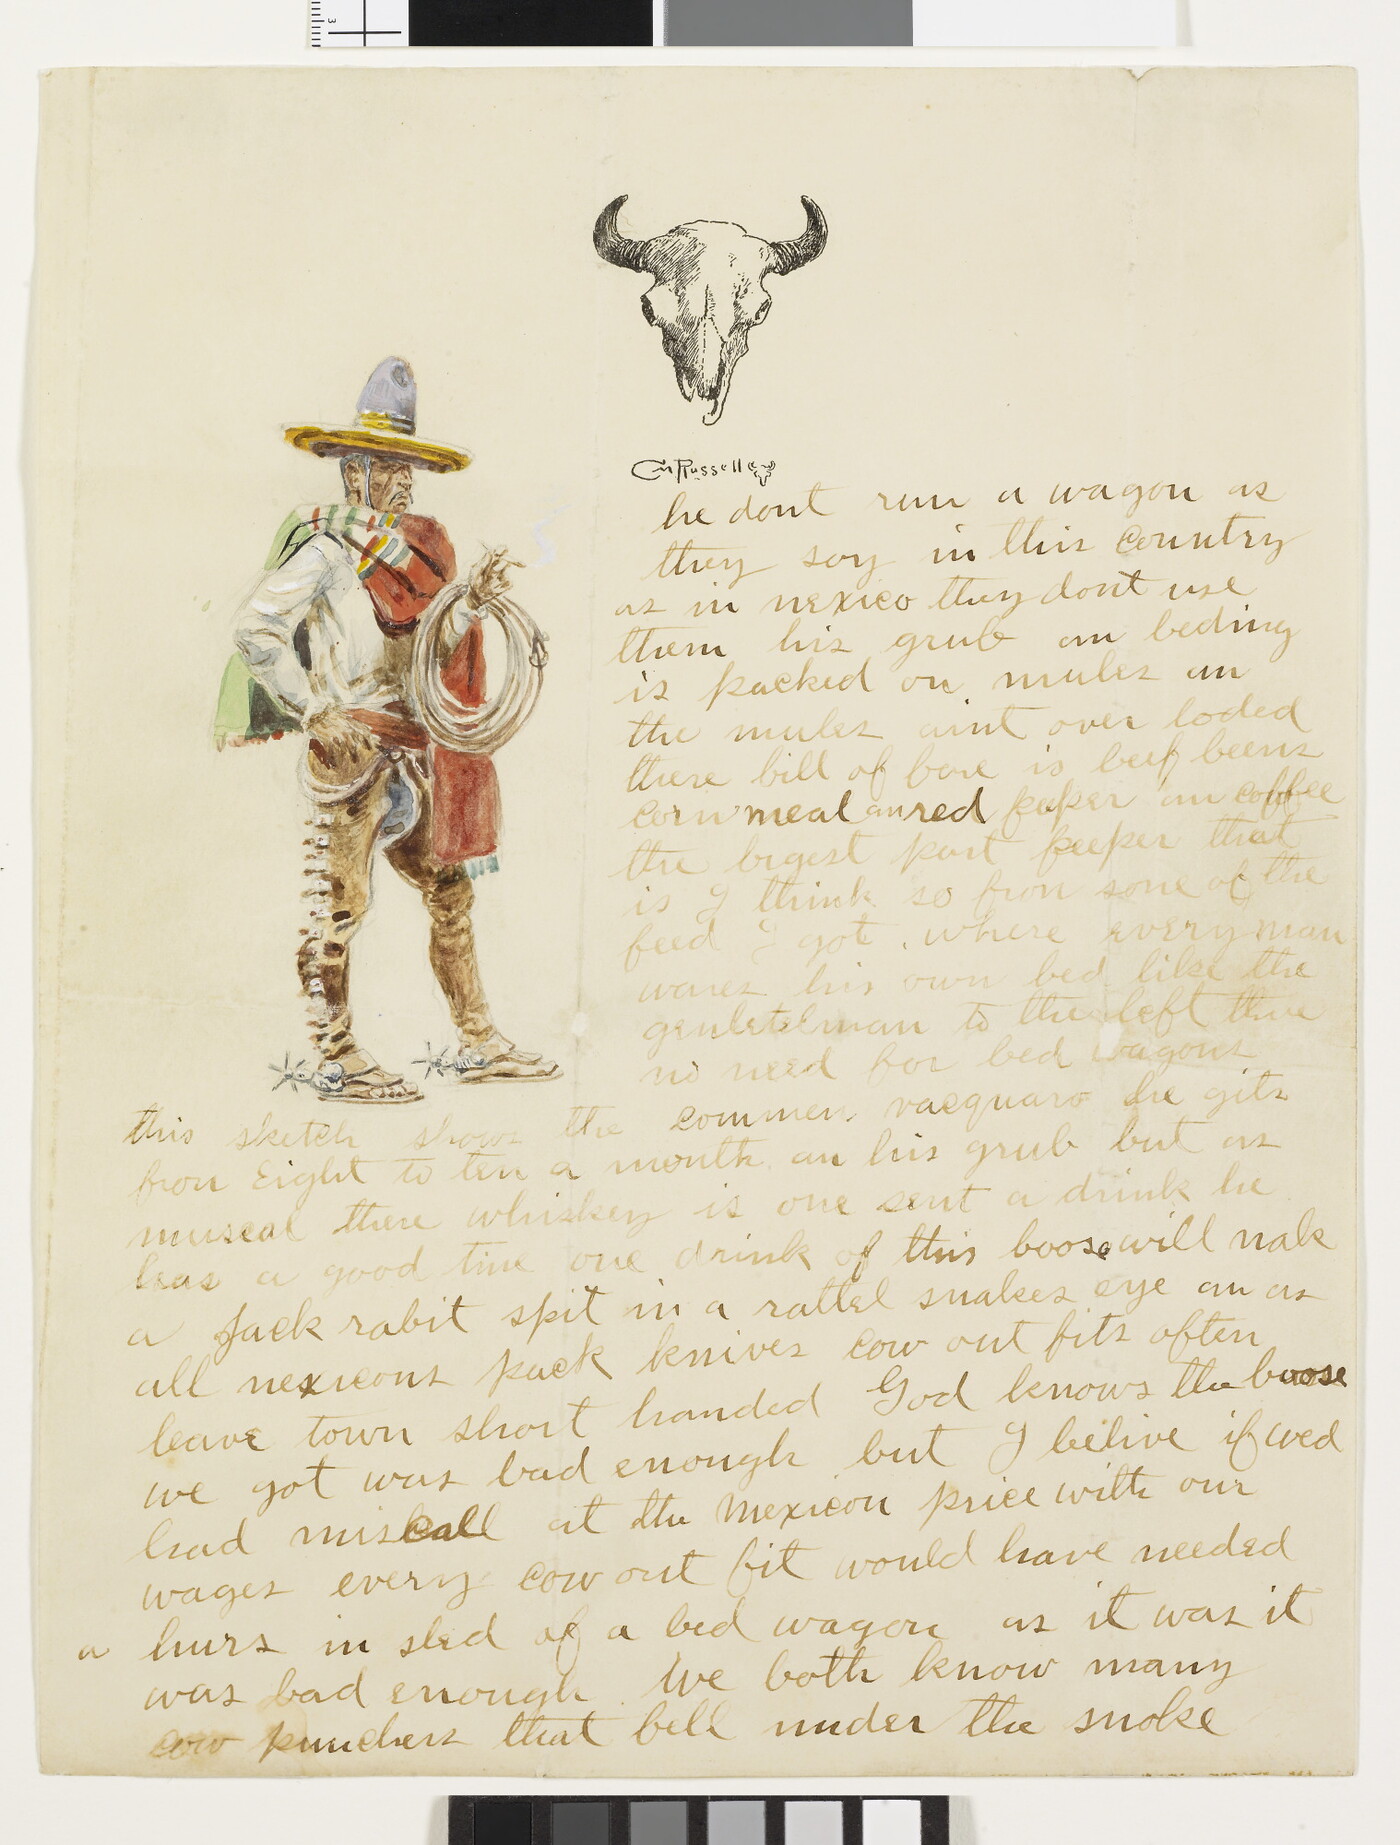 CM Russell
he dont run a wagon as
they say in this country
as in nexico they dont use
them his grub an beding
is packed on mules an
the mules aint over loded
there bill of fare is beef beens
corn meal an red peper an coffee
the bigest part peeper that
is I think so fron some of the
feed I got. where every man
wares his own bed like the
gentelman to the left thare
no need for bed wagons
this sketch shows the commen vacquaro he gits
fron Eight to ten a month an his grub but as
muscal there whiskey is one sent a drink he
has a good time one drink of this boose will mak
a Jack rabit spit in a rattel snakes eye an as
all nexicons pack knives cow out fits often
leave town short handed God knows the boose
we got was bad enough but I belive if wed
had miscall at the Mexicon price with our
wages every cow out fit would have needed
a hurs in sted of a bed wagon as it was it
was bad enough. We both know many
cow punchers that fell under the smoke